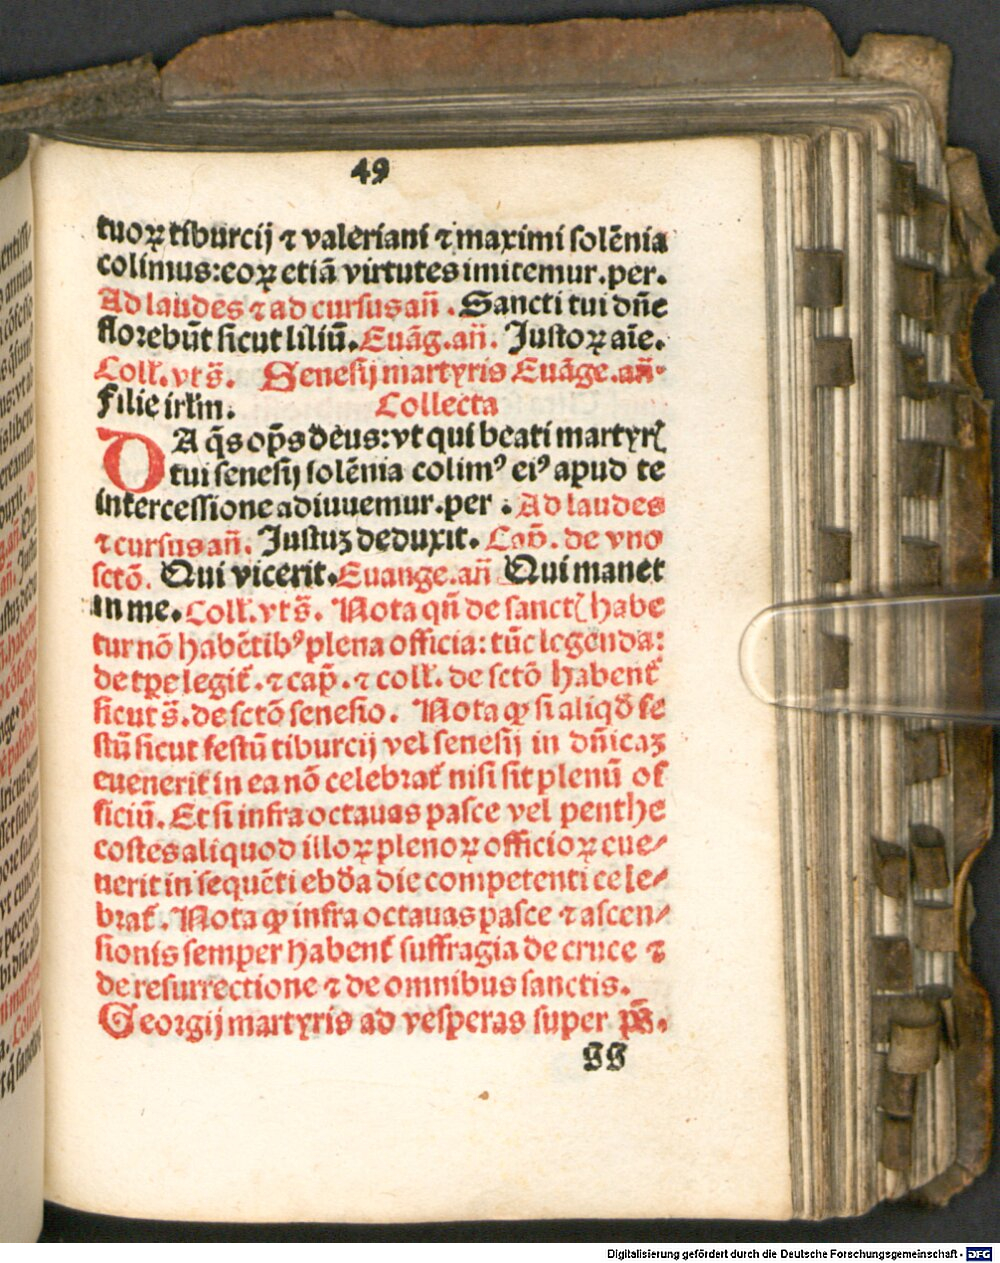 49
tuoꝝ tiburcij ⁊ valeriani ⁊ maximi solēnia
colimus:eoꝝ etiā virtutes imitemur.per.
Ad laudes ⁊ ad cursus añ. Sancti tui dñe
florebūt sicut liliū. Euāg.añ. Justoꝝ aīe.
Coll̄.vt s̄. Senesij martyris Euāge.añ.
Filie irl̄m. Collecta
DA q̄s op̄s deus:vt qui beati martyrꝭ
tui senesij solēnia colimꝰ eiꝰ apud te
intercessione adiuuemur.per. Ad laudes
⁊ cursus añ. Justuꝫ deduxit. Cap̄. de vno
sctō. Qui vicerit. Euange.añ Qui manet
in me. Coll̄.vt s̄. Nota qn̄ de sanctꝭ habe
tur nō habētibꝰ plena officia: tūc legenda:
de tp̄e legit̄.⁊ cap̄.⁊ coll̄. de sctō habent̄
sicut s̄.de sctō senesio. Nota ꝙ si aliqd̄ fe
stū sicut festū tiburcij vel senesij in dn̄icaꝫ
euenerit in ea nō celebrat̄ nisi sit plenū of
ficiū. Et si infra octauas pasce vel penthe
costes aliquod illoꝝ plenoꝝ officioꝝ eue⸗
nerit in sequēti ebd̄a die competenti cele⸗
brat̄. Nota ꝙ infra octauas pasce ⁊ ascen⸗
sionis semper habent̄ suffragia de cruce ⁊
de resurrectione ⁊ de omnibus sanctis.
Georgij martyris ad vesperas super ps̄.
Digitalisierung gefördert durch die Deutsche Forschungsgemeinschaft - DFG